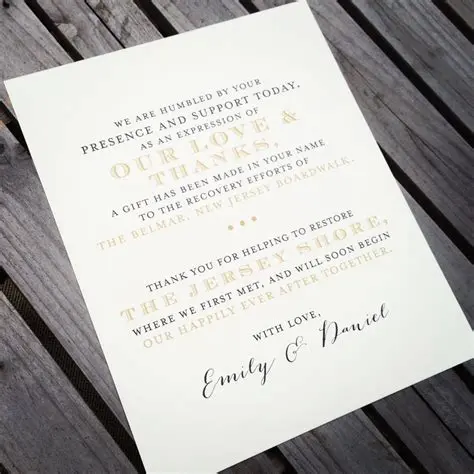 WE ARE HUMBLED BY YOUR
PRESENCE AND SUPPORT TODAY,
AS AN EXPRESSION OF
OUR LOVE &
THANKS,
A GIFT HAS BEEN MADE IN YOUR NAME
TO THE RECOVERY EFFORTS OF
THE BELMAR, NEW JERSEY BOARDWALK.
THANK YOU FOR HELPING TO RESTORE
THE JERSEY SHORE,
WHERE WE FIRST MET, AND WILL SOON BEGIN
OUR HAPPILY EVER AFTER TOGETHER.
WITH LOVE,
Emily & Daniel